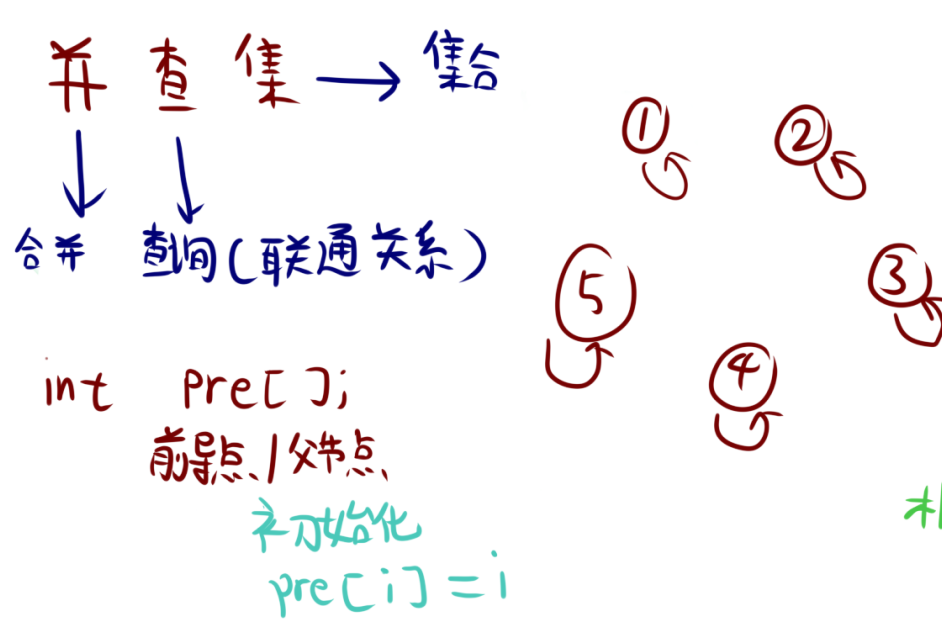 并查集 → 集合
合并 查询(联通关系)
int pre[];
前导点/父节点
初始化
pre[i]=i
①
②
⑤
③
④